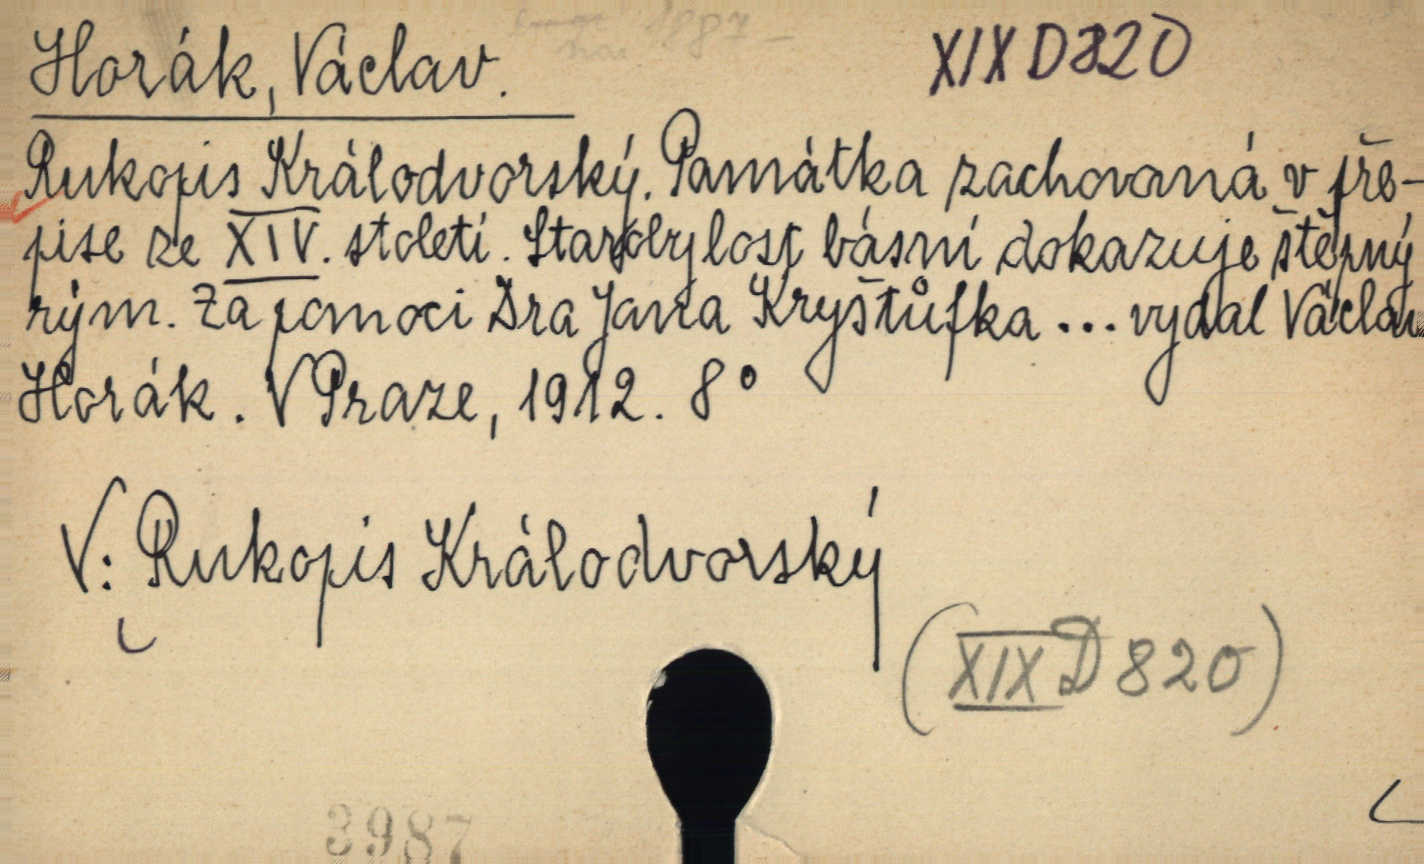 1887 -
Horák, Václav. XIX D 820
Rukopis Králodvorský. Památka zachovaná v pře-
pise ze XIV. století. Starobylost básní dokazuje štěpný
rým. Za pomoci Dra Jana Kryštůfka ... vydal Václav
Horák. V Praze, 1912. 8°
V: Rukopis Králodvorský
(XIX D 820)
3987